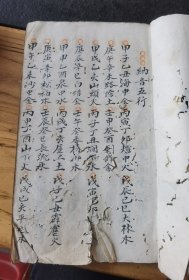 納音五行
甲子乙丑海中金 丙寅丁卯爐中火 戊辰己巳大林木
庚午辛未路傍土 壬申癸酉劍鋒金
甲戌乙亥山頭火 丙子丁丑澗下水 戊寅己卯
庚辰辛巳白蠟金 壬午癸未楊柳木
甲申乙酉泉中水 丙戌丁亥屋上土 戊子己丑霹靂火
庚寅辛卯松柏木 壬辰癸巳長流水
甲午乙未沙中金 丙申丁酉山下火 戊戌己亥平地木